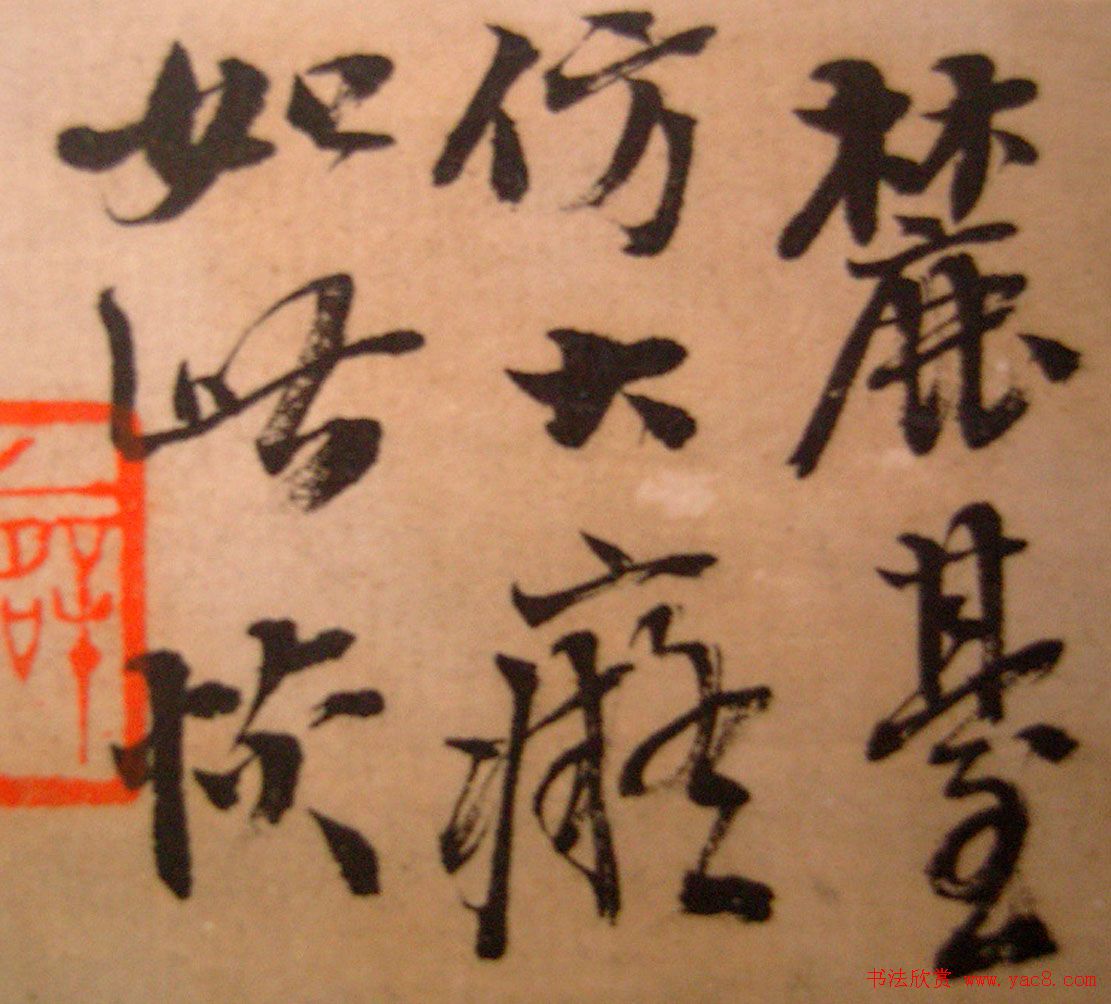 麓臺
仿大癡
如此幀
书法欣赏 www.yac8.com